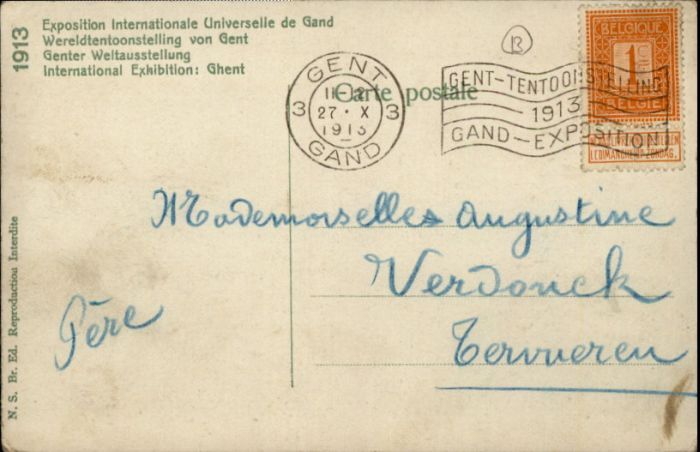 1913
Exposition Internationale Universelle de Gand
Wereldtentoonstelling von Gent
Genter Weltausstellung
International Exhibition: Ghent
B
Carte postale
GENT
3 3
27 · X
1913
GAND
GENT-TENTOONSTELLING
1913
GAND-EXPOSITION
BELGIQUE
1
BELGIË
Mademoiselles Augustine
Verdonck
Tervueren
Père
N. S. Br. Ed. Reproduction Interdite